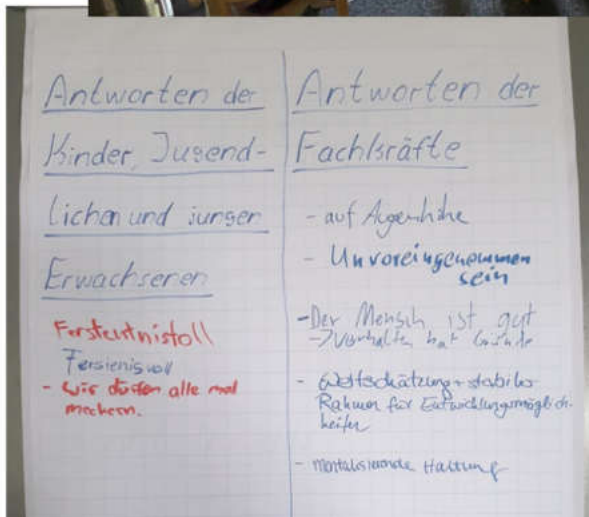 Antworten der
Kinder, Jugend-
lichen und junger
Erwachsenen
Ferstentnistoll
Fersienisvoll
- wir dürfen alle mal
meckern.
Antworten der
Fachkräfte
- auf Augenhöhe
- Unvoreingenommen
sein
- Der Mensch ist gut
-> Verhalten hat Gründe
- Wertschätzung + stabiler
Rahmen für Entwicklungsmöglich-
keiten
- mentalisierende Haltung